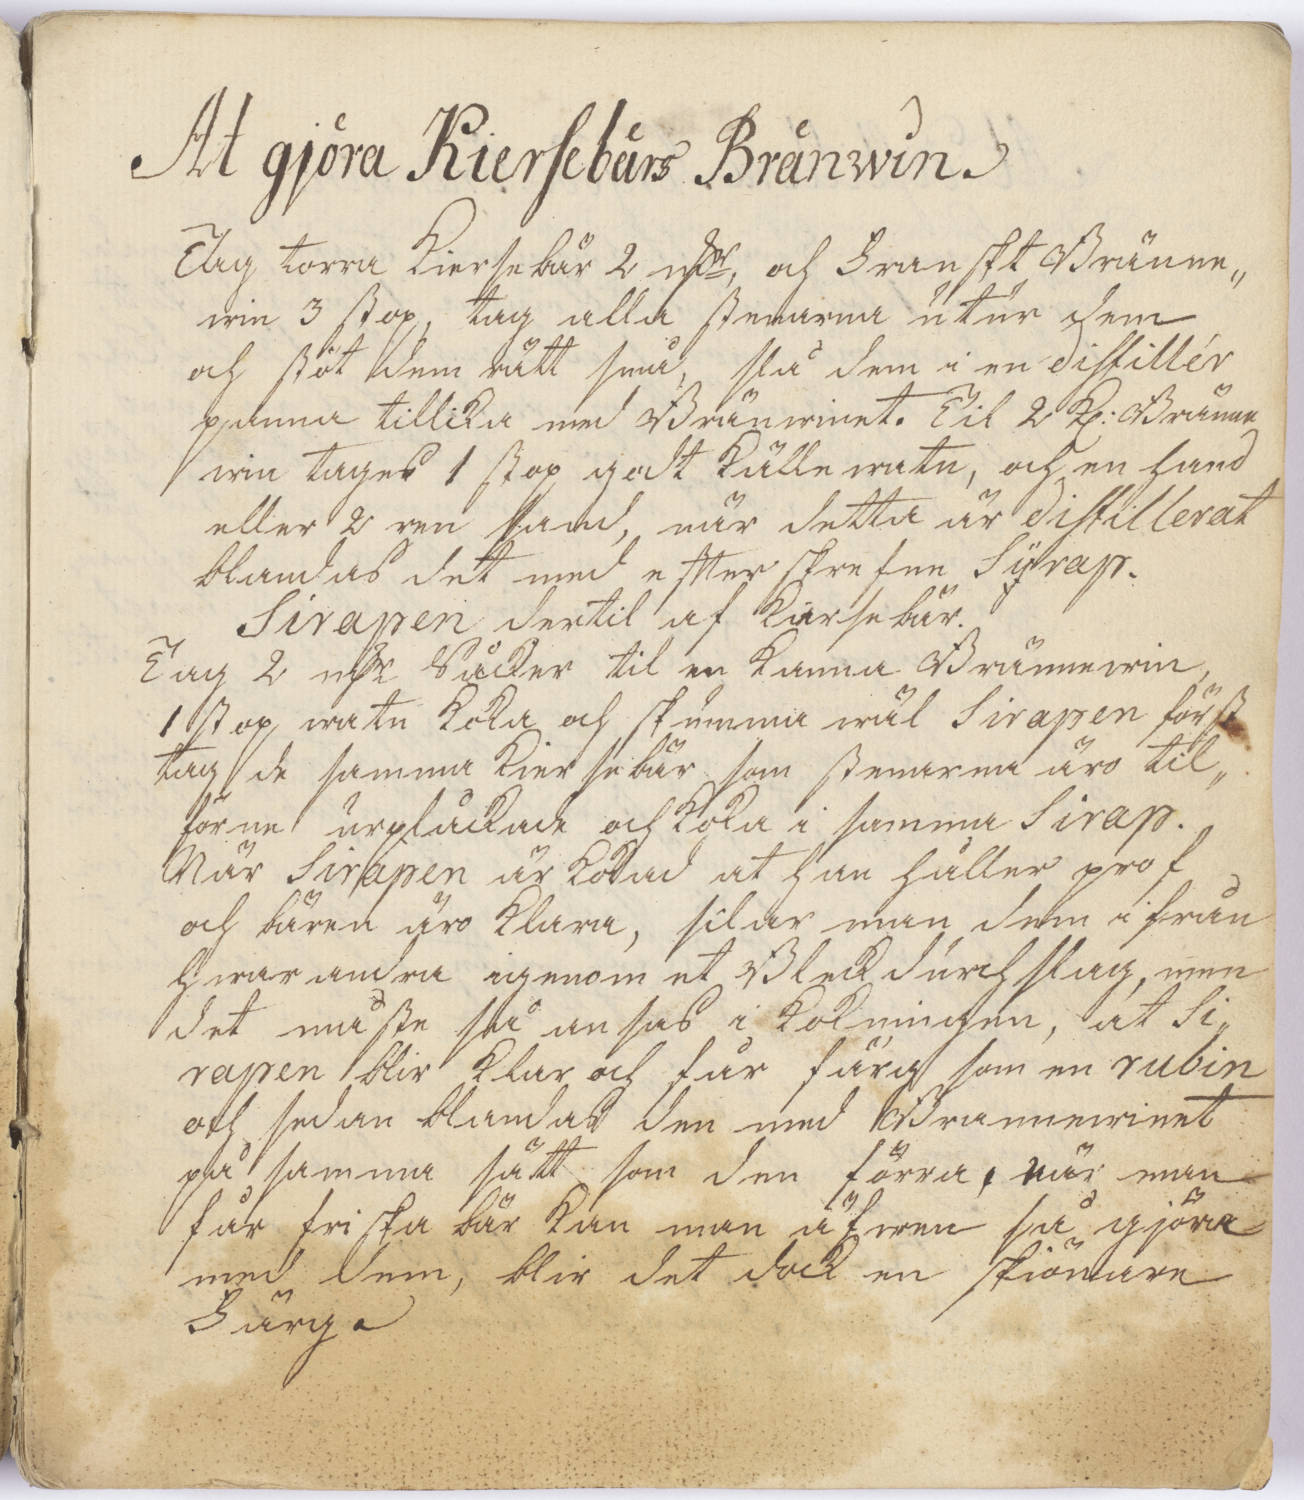 At gjöra Kiersebärs Bränwin.
Tag torra Kiersebär 2 och Franskt Bränne„
win 3 stop, tag alla stenarna utur dem
och stöt dem rätt små, slå dem i en distillér
panna tillika med Bränwinet. Til 2 K: Bränne
win tages 1 stop godt källe watn, och en hand
eller 2 ren sand, när detta är distillerat
blandas det med efterskrefne Syrap.
Sirapen dertil af Kiersebär.
Tag 2 Såcker til en kanna Brännewin,
1 stop watn koka och skumma wäl Sirapen först
tag de samma Kiersebär som stenarna äro til„
förne urplåckade och koka i samma Sirap.
När Sirapen är kokad at han håller prof
och bären äro klara, silar man dem ifrån
hwarandra igenom et Bleckdurchslag, men
det måste så ansas i kokningen, at Si„
rapen blir klar och får färg som en rubin
och sedan blandas den med Brannewinet
på samma sätt som den förra, när man
får friska bär kan man äfwen så gjöra
med dem, blir det dock en skiönare
Färg.